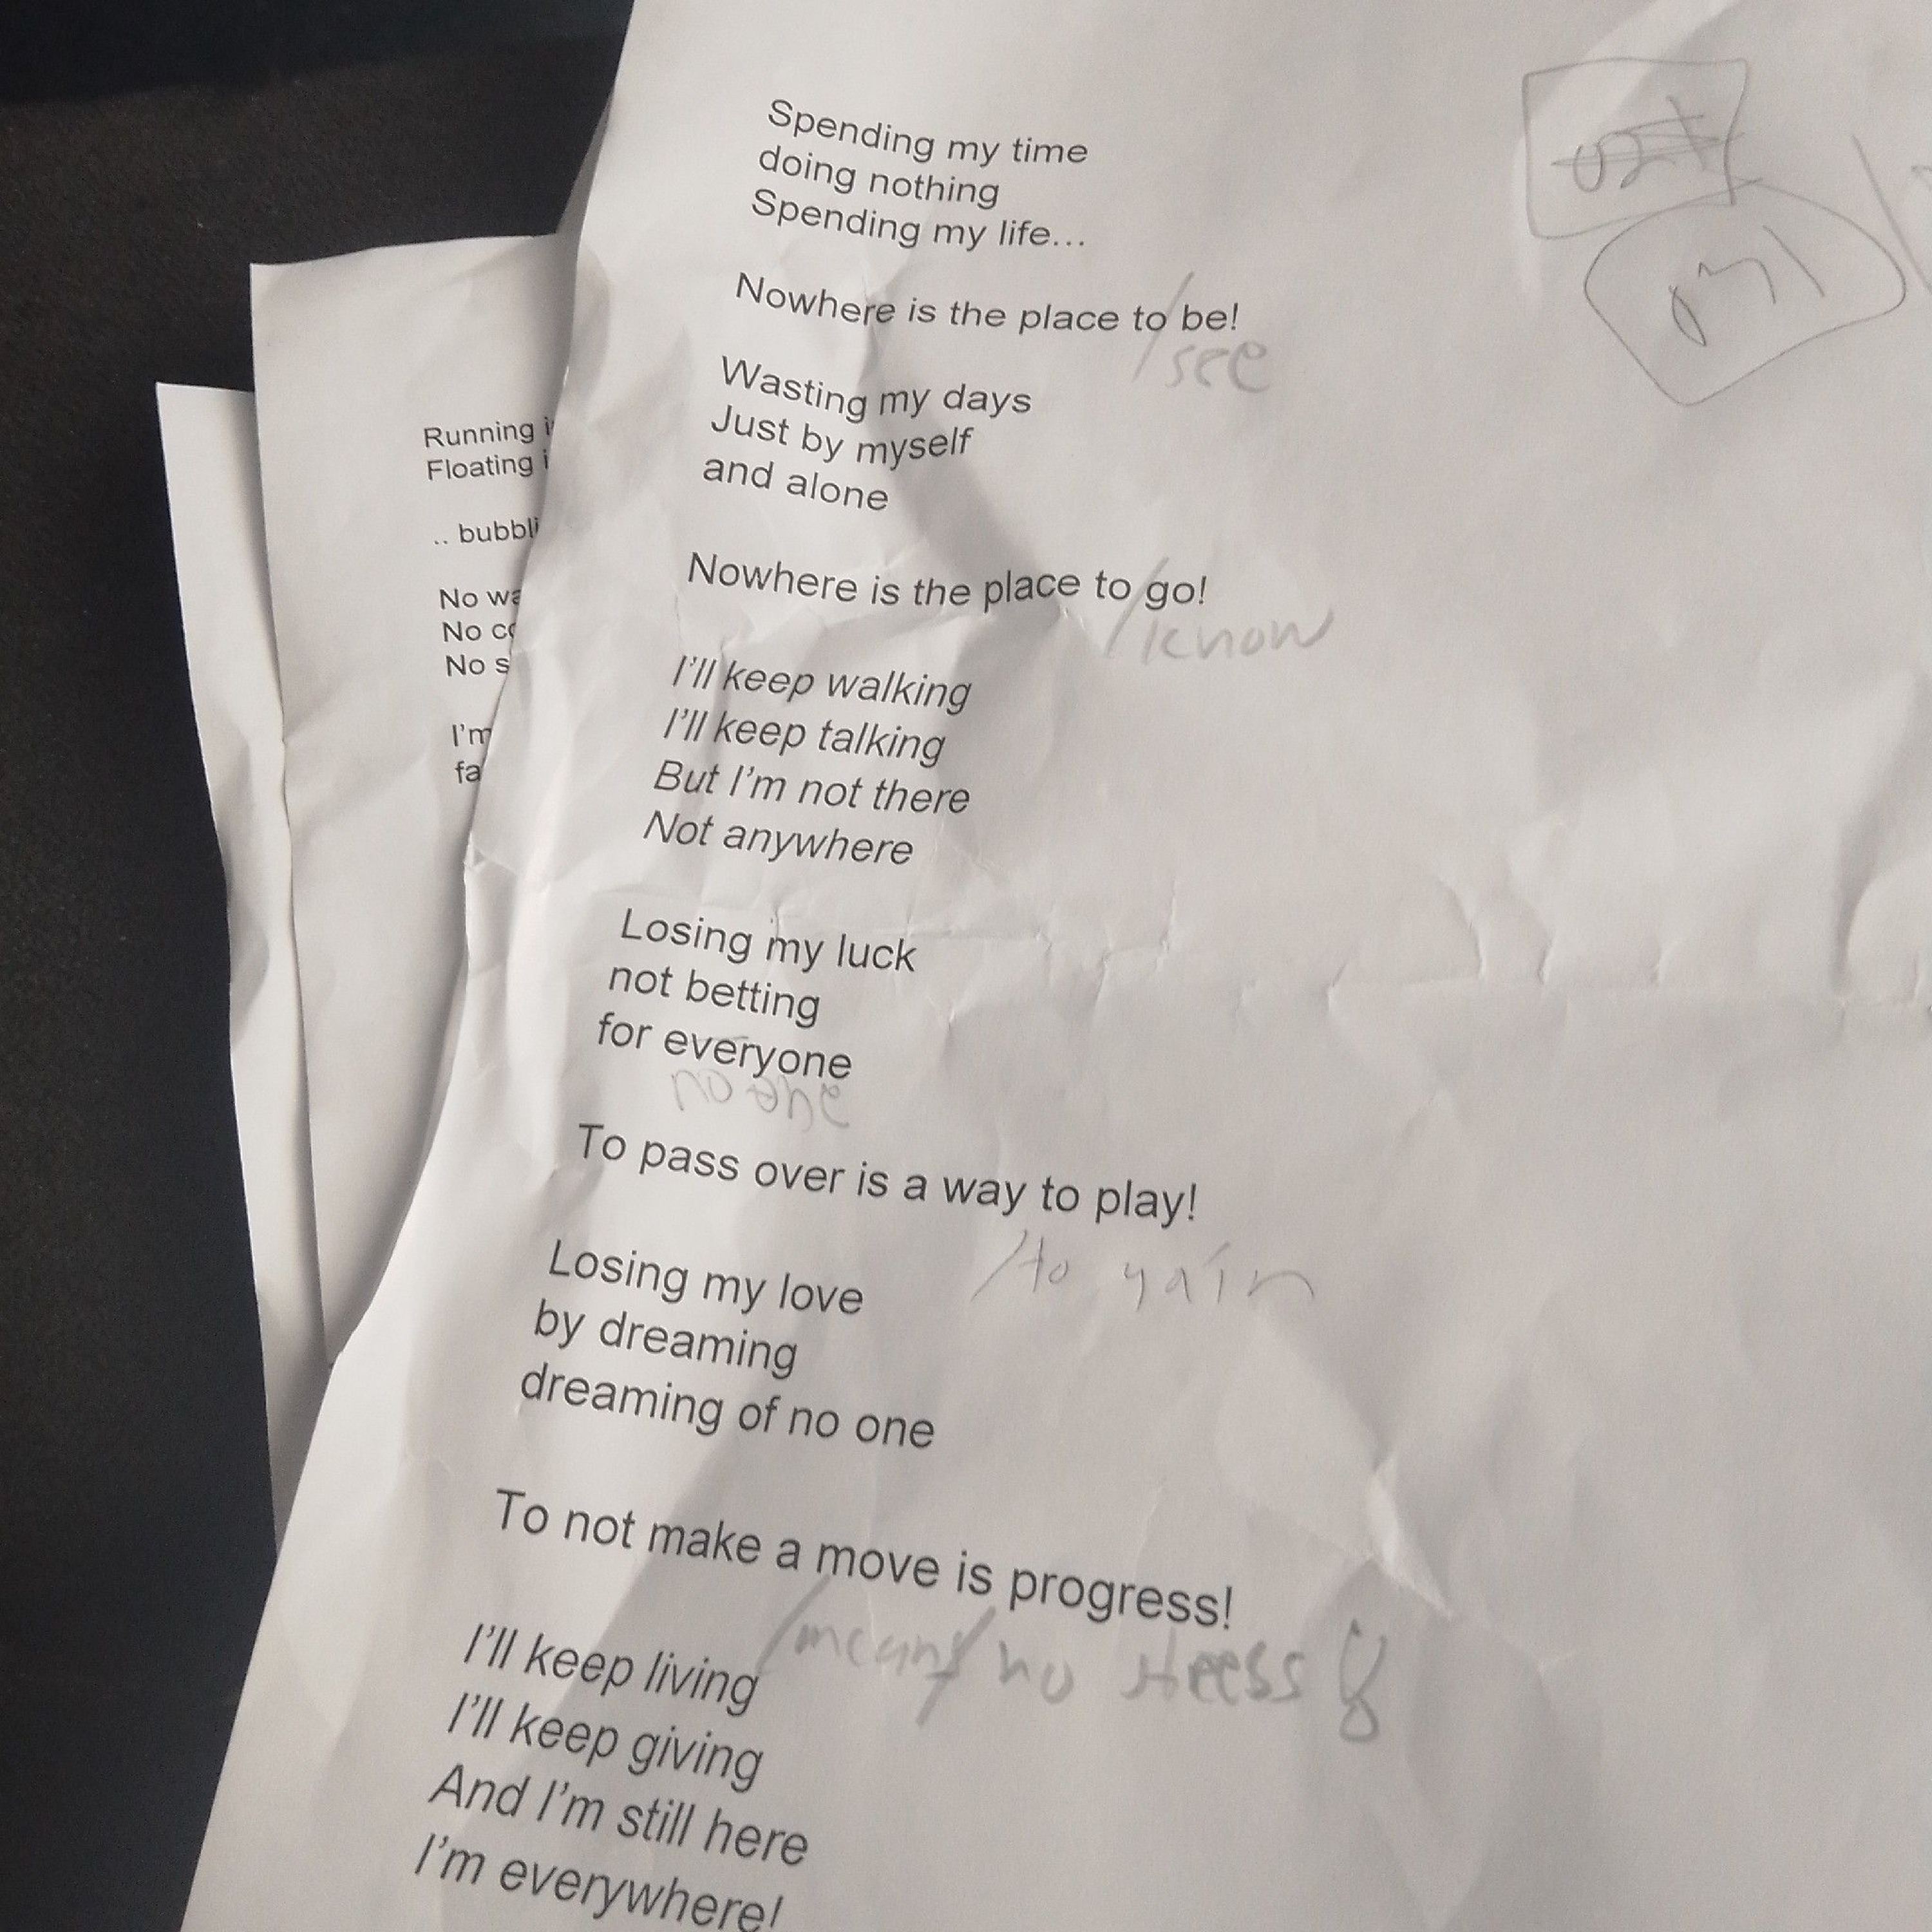 Spending my time
doing nothing
Spending my life...
Nowhere is the place to be!
/see
Wasting my days
Just by myself
and alone
Nowhere is the place to go!
/know
I'll keep walking
I'll keep talking
But I'm not there
Not anywhere
Losing my luck
not betting
for everyone
no one
To pass over is a way to play!
/to gain
Losing my love
by dreaming
dreaming of no one
To not make a move is progress!
no
I'll keep living
I'll keep giving
And I'm still here
I'm everywhere!
Running
Floating
.. bubbli
No wa
No
No s
I'm
fa